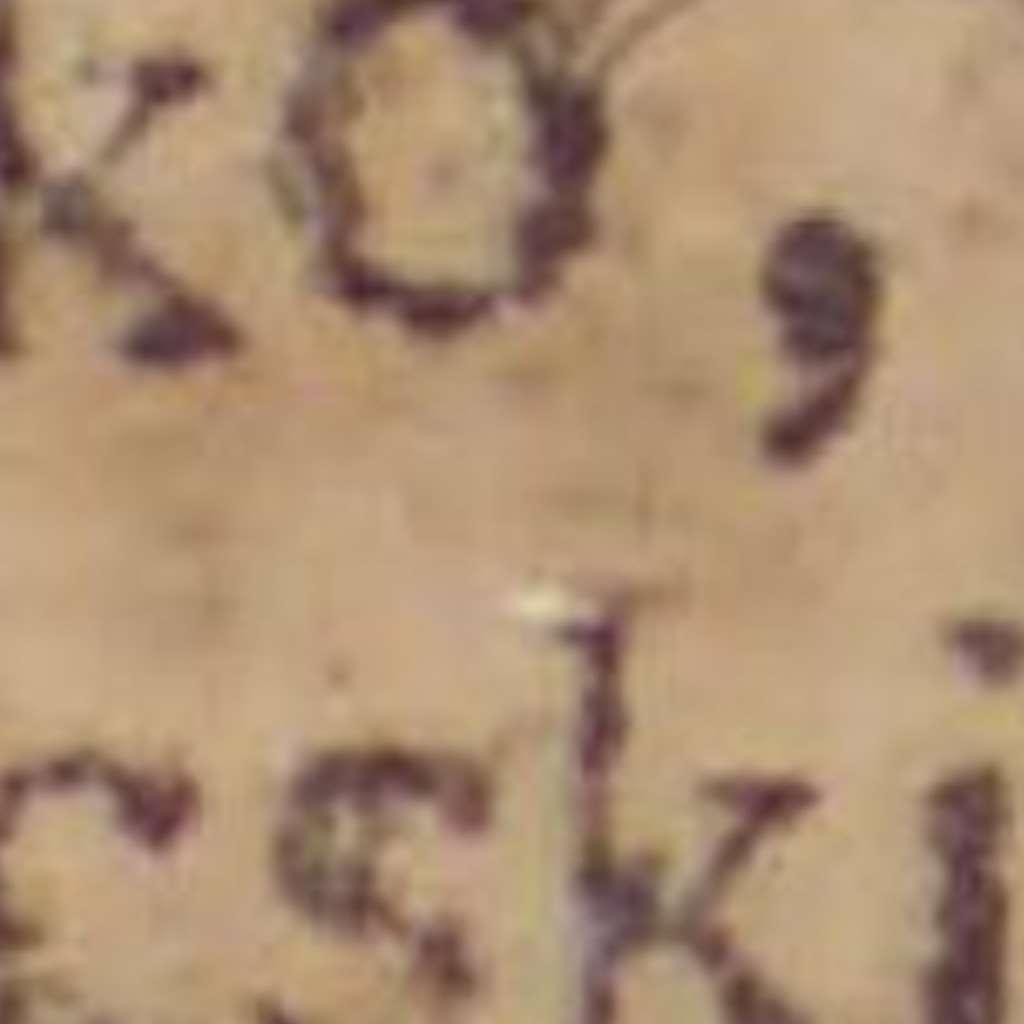 ko,
cski